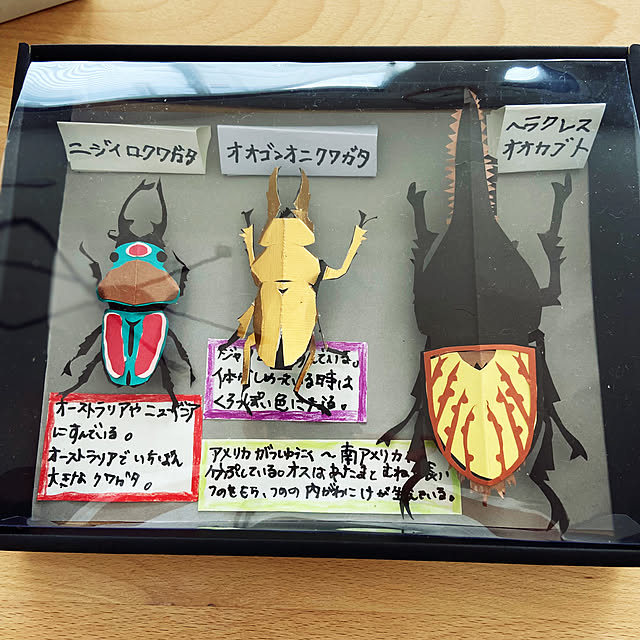 ニジイロクワガタ
オオゴンオニクワガタ
ヘラクレス
オオカブト
オーストラリアやニューギニア
にすんでいる。
オーストラリアでいちばん
大きなクワガタ。
ジャ んでいる。
体がしめっている時は
くろっぽい色になる。
アメリカがっしゅうこく〜南アメリカ
分ぷしている。オスはあたまとむね 長い
つのをもち、つのの内がわにけが生えている。